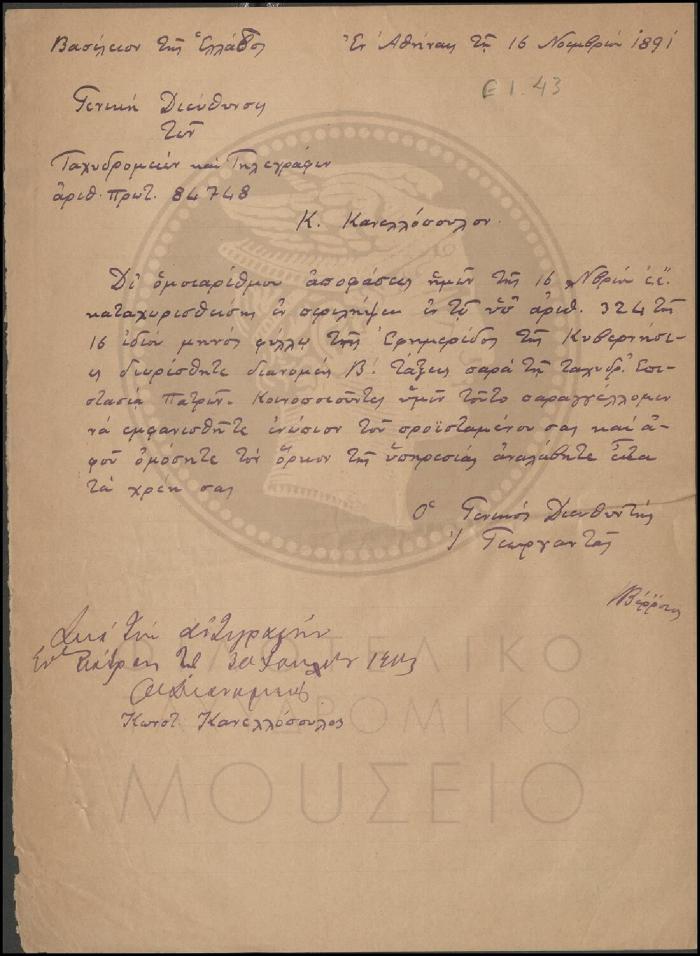 Βασίλειον τῆς Ἑλλάδος
Ἐν Ἀθήναις τῇ 16 Νοεμβρίου 1891
Ε 1.43
Γενική Διεύθυνσις
τῶν
Ταχυδρομείων καὶ Τηλεγράφων
ἀριθ. πρωτ. 84748
Κ. Κανελλόπουλον.
Δι' ὁμοιαρίθμου ἀποφάσεως ἡμῶν τῆς 16 Νβρίου ἐ.ἔ.
καταχωρισθείσης ἐν περιλήψει ἐν τῷ ὑπ' ἀριθ. 324 τῆς
16 ἰδίου μηνός φύλλῳ τῆς Ἐφημερίδος τῆς Κυβερνήσε-
ως διωρίσθητε διανομεύς Β! τάξεως παρά τῇ ταχυδρ. Ἐπι-
στασίᾳ Πατρῶν. Κοινοποιοῦντες ὑμῖν τοῦτο παραγγέλλομεν
νά ἐμφανισθῆτε ἐνώπιον τοῦ προϊσταμένου σας καί ἀ-
φοῦ ὁμόσητε τόν ὅρκον τῆς ὑπηρεσίας ἀναλάβητε εἶτα
τά χρέη σας
Ὁ Γενικός Διευθυντής
Γεωργαντᾶς
Διά τήν ἀντιγραφήν
Ἐν Πάτραις τῇ 30
Ὁ Διανομεύς
Κωνστ. Κανελλόπουλος
ΦΙΛΟΤΕΛΙΚΟ
ΤΑΧΥΔΡΟΜΙΚΟ
ΜΟΥΣΕΙΟ